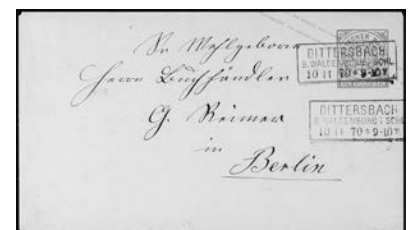 Sr Wohlgeboren
Herrn Buchhändler
G. Reimer
in
Berlin
DITTERSBACH
B. WALDENBURG I. SCHL
10 11 70 * 9-10 V
DITTERSBACH
B. WALDENBURG I. SCHL
10 11 70 * 9-10 V